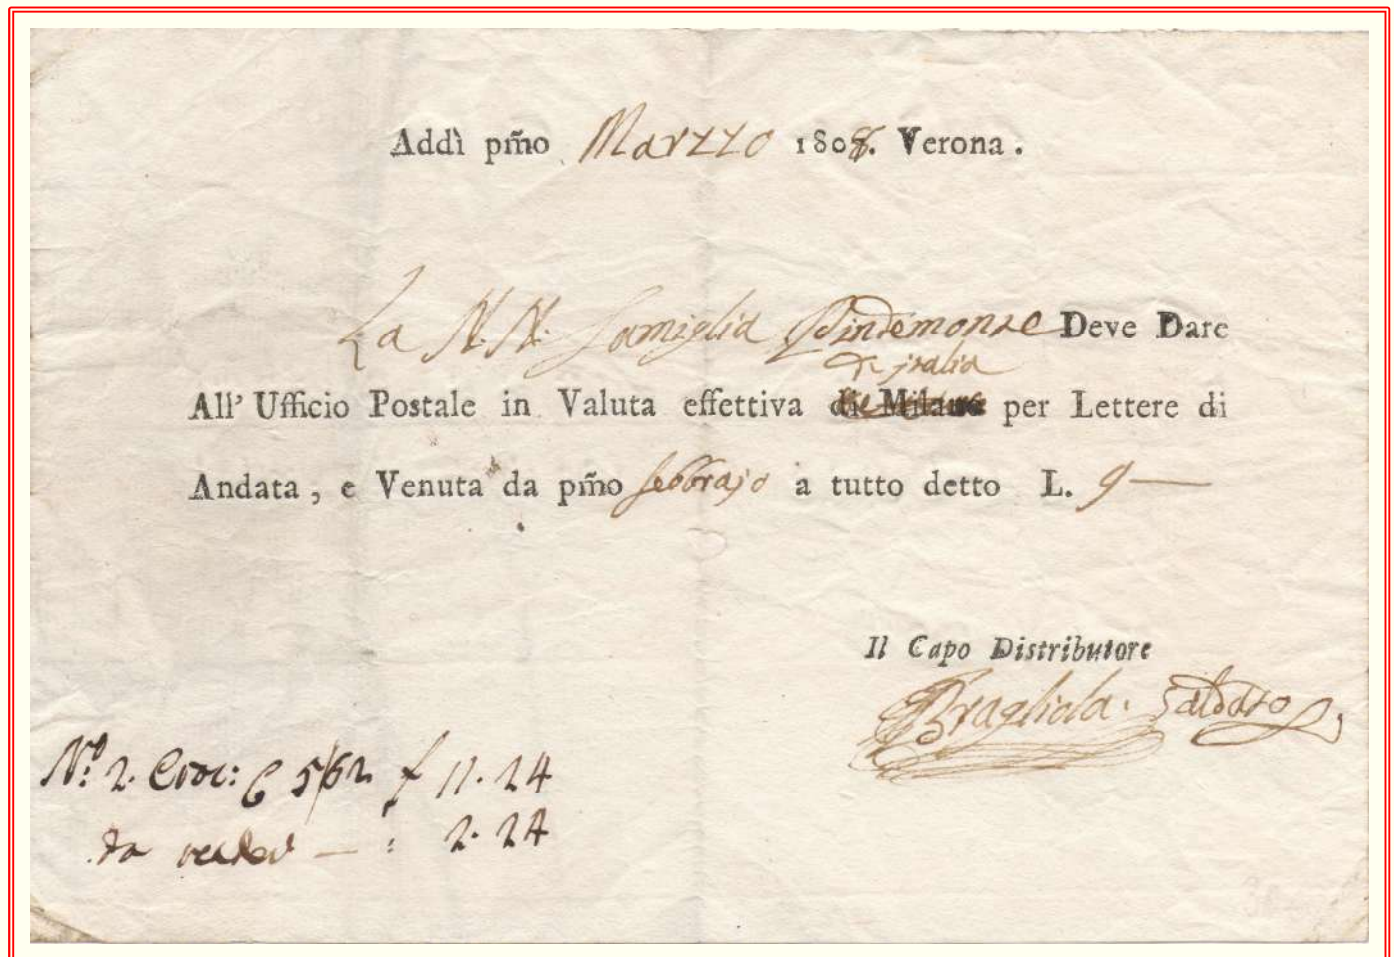 Addì pm̃o Marzzo 1808. Verona.
La N. N. famiglia Pindemonte Deve Dare
italia
All' Ufficio Postale in Valuta effettiva di Milano per Lettere di
Andata, e Venuta da pm̃o febbrajo a tutto detto L. 9 —
Il Capo Distributore
Bragliola
N.º 2. Croc: 11. 24
2. 24